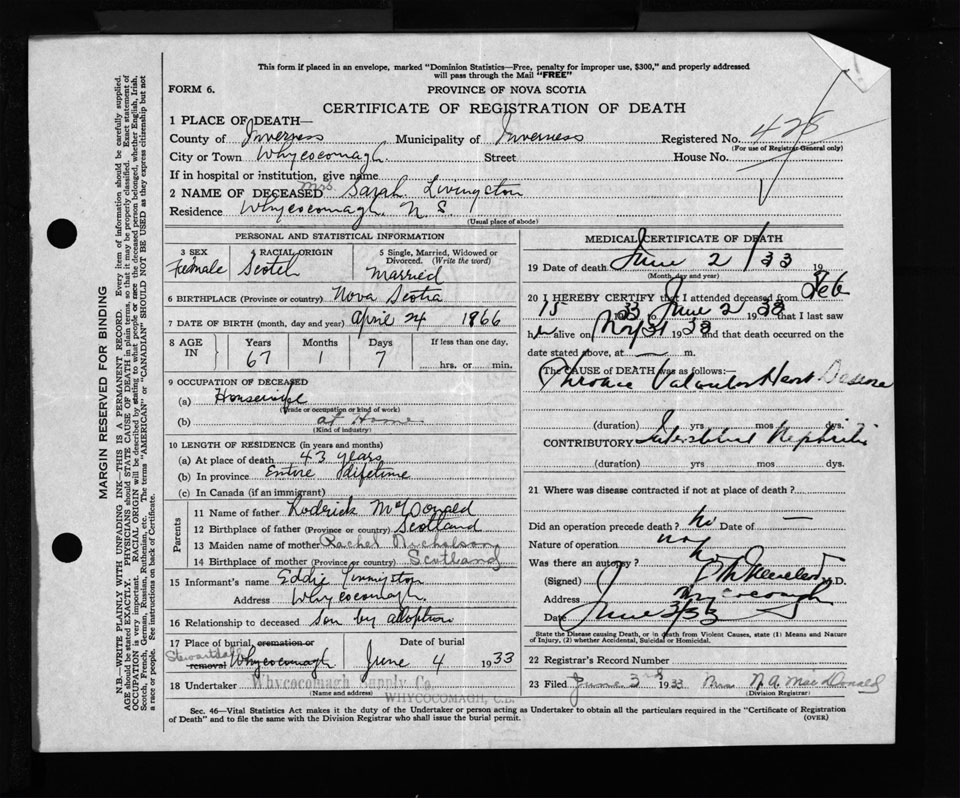 This form if placed in an envelope, marked "Dominion Statistics—Free, penalty for improper use, $300," and properly addressed
will pass through the Mail "FREE"
FORM 6.
PROVINCE OF NOVA SCOTIA
CERTIFICATE OF REGISTRATION OF DEATH
1 PLACE OF DEATH—
County of Inverness Municipality of Inverness Registered No. 426
(For use of Registrar General only)
City or Town Whycocomagh. Street House No.
If in hospital or institution, give name
2 NAME OF DECEASED Mrs. Sarah Livingston
Residence Whycocomagh. N.S.
(Usual place of abode)
PERSONAL AND STATISTICAL INFORMATION
3 SEX 4 RACIAL ORIGIN 5 Single, Married, Widowed or
Divorced. (Write the word)
Female Scotch Married
6 BIRTHPLACE (Province or country) Nova Scotia
7 DATE OF BIRTH (month, day and year) April 24 1866
8 AGE IN Years Months Days If less than one day.
67 1 7 hrs. or min.
9 OCCUPATION OF DECEASED
(a) Housewife
(Trade or occupation or kind of work)
(b) at Home
(Kind of industry)
10 LENGTH OF RESIDENCE (in years and months)
(a) At place of death 43 years
(b) In province Entire lifetime
(c) In Canada (if an immigrant)
Parents
11 Name of father Roderick McDonald
12 Birthplace of father (Province or country) Scotland
13 Maiden name of mother Rachel Nicholson
14 Birthplace of mother (Province or country) Scotland
15 Informant's name Eddie Livingston
Address Whycocomagh.
16 Relationship to deceased son by adoption
17 Place of burial, cremation or Date of burial
removal Whycocomagh June 4 1933
18 Undertaker Whycocomagh Supply Co.
(Name and address)
WHYCOCOMAGH, C.B.
MEDICAL CERTIFICATE OF DEATH
19 Date of death June 2/33 19
(Month, day and year)
20 I HEREBY CERTIFY that I attended deceased from
15 1933 to June 2 1933 that I last saw
h alive on 31 1933 and that death occurred on the
date stated above, at — m.
The CAUSE of DEATH was as follows:
Chronic Valvular Heart Disease
(duration) yrs mos dys.
CONTRIBUTORY Interstitial Nephritis
(duration) yrs mos dys.
21 Where was disease contracted if not at place of death?
Did an operation precede death? No Date of —
Nature of operation
Was there an autopsy? No
(Signed) M.D.
Address Whycocomagh
Date June 3/33
State the Disease causing Death, or in death from Violent Causes, state (1) Means and Nature
of Injury, (2) whether Accidental, Suicidal or Homicidal.
22 Registrar's Record Number
23 Filed June 3rd 1933 Mrs. N. A. MacDonald
(Division Registrar)
Sec. 46—Vital Statistics Act makes it the duty of the Undertaker or person acting as Undertaker to obtain all the particulars required in the "Certificate of Registration
of Death" and to file the same with the Division Registrar who shall issue the burial permit.
(OVER)
MARGIN RESERVED FOR BINDING
N.B.—WRITE PLAINLY WITH UNFADING INK—THIS IS A PERMANENT RECORD. Every item of information should be carefully supplied.
AGE should be stated EXACTLY. PHYSICIANS should STATE CAUSE OF DEATH in plain terms, so that it may be properly classified. Exact statement of
OCCUPATION is very important. RACIAL ORIGIN will be described by stating to what people or race the deceased person belonged, whether English, Irish,
Scotch, French, German, Russian, Ruthenian, etc. The terms "AMERICAN" or "CANADIAN" SHOULD NOT BE USED as they express citizenship but not
a race or people. See instructions on back of Certificate.